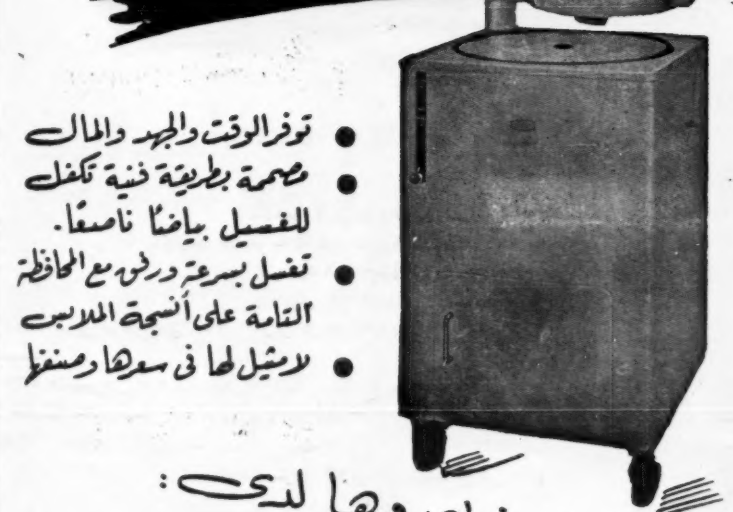 ● توفر الوقت والجهد والمال
● مصممة بطريقة فنية تكفل
للغسيل بياضًا ناصعًا.
● تغسل بسرعة ورفق مع المحافظة
التامة على أنسجة الملابس
● لا مثيل لها في سعرها وصنفها
لدى: